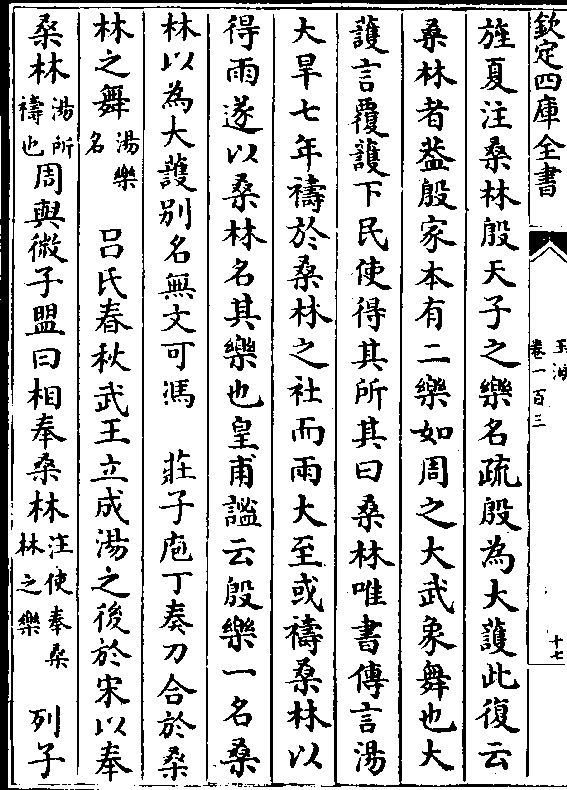 欽定四庫全書
玉海
卷一百三
十七
旌夏注桑林殷天子之樂名疏殷為大䕶此復云
桑林者葢殷家本有二樂如周之大武象舞也大
䕶言覆䕶下民使得其所其曰桑林唯書傳言湯
大旱七年禱於桑林之社而雨大至或禱桑林以
得雨遂以桑林名其樂也皇甫謐云殷樂一名桑
林以為大䕶别名無文可馮　莊子庖丁奏刀合於桑
林之舞湯樂名　吕氏春秋武王立成湯之後於宋以奉
桑林湯所禱也周與微子盟曰相奉桑林注使奉桑林之樂　列子